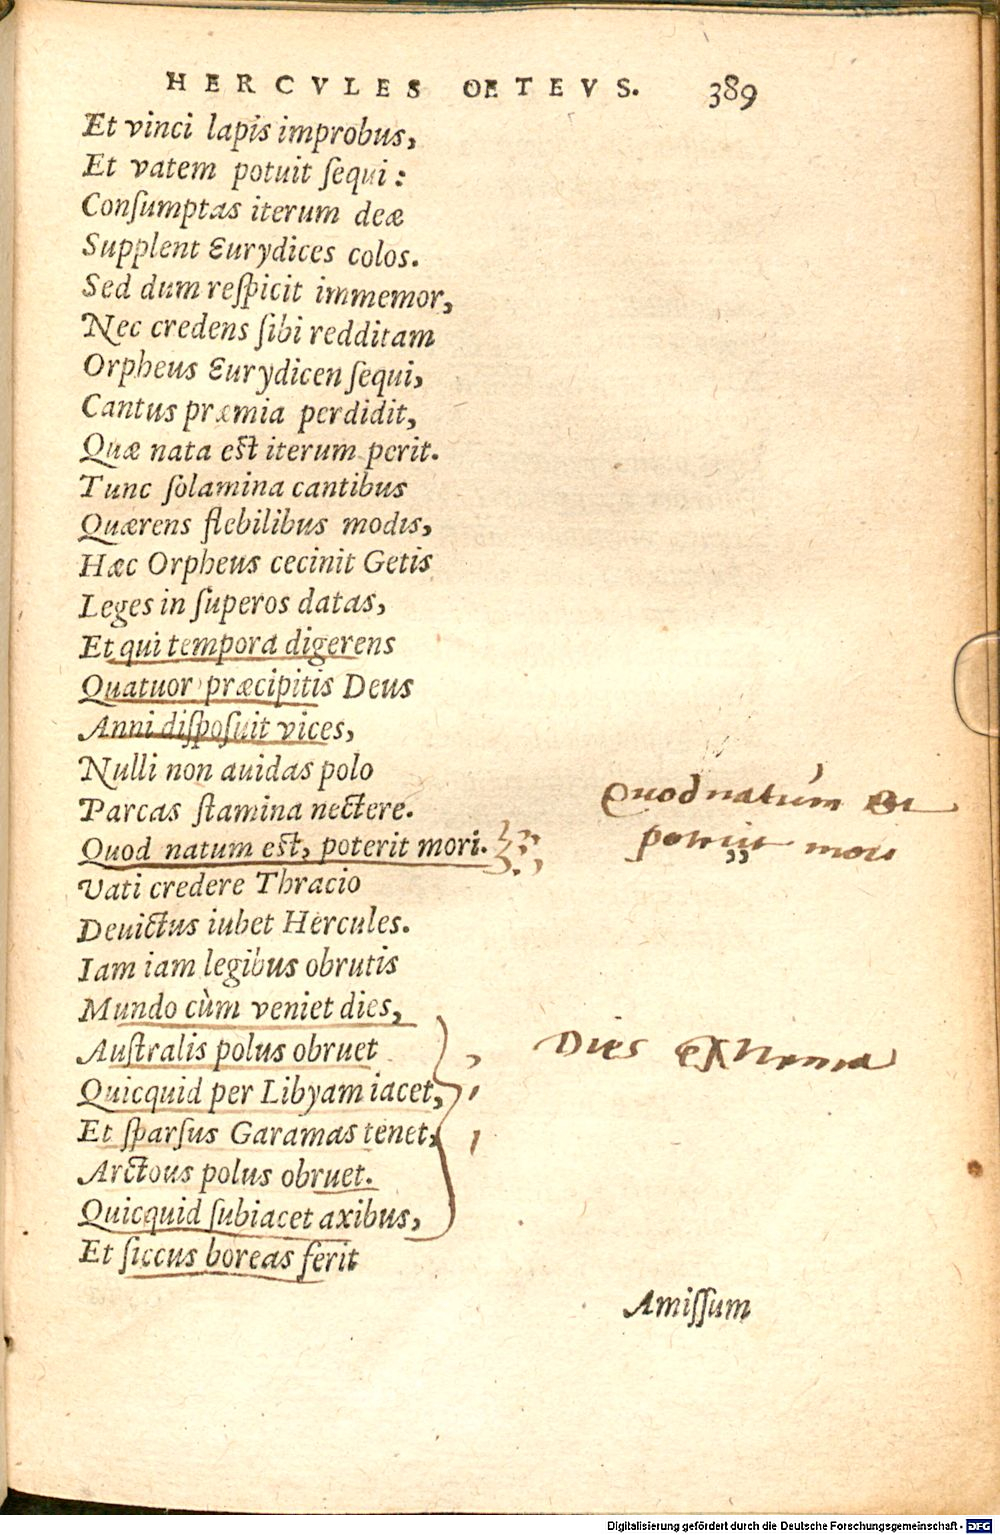 HERCVLES OETEVS. 389
Et vinci lapis improbus,
Et vatem potuit ſequi:
Conſumptas iterum deæ
Supplent Eurydices colos.
Sed dum reſpicit immemor,
Nec credens ſibi redditam
Orpheus Eurydicen ſequi,
Cantus præmia perdidit,
Quæ nata est iterum perit.
Tunc ſolamina cantibus
Quærens flebilibus modis,
Hæc Orpheus cecinit Getis
Leges in ſuperos datas,
Et qui tempora digerens
Quatuor præcipitis Deus
Anni diſpoſuit vices,
Nulli non auidas polo
Parcas ſtamina nectere.
Quod natum est, poterit mori.
Quod natum est
poterit mori
Vati credere Thracio
Deuictus iubet Hercules.
Iam iam legibus obrutis
Mundo cùm veniet dies,
Auſtralis polus obruet
Dies extrema
Quicquid per Libyam iacet,
Et ſparſus Garamas tenet,
Arctous polus obruet.
Quicquid ſubiacet axibus,
Et ſiccus boreas ferit
Amiſſum
Digitalisierung gefördert durch die Deutsche Forschungsgemeinschaft - DFG